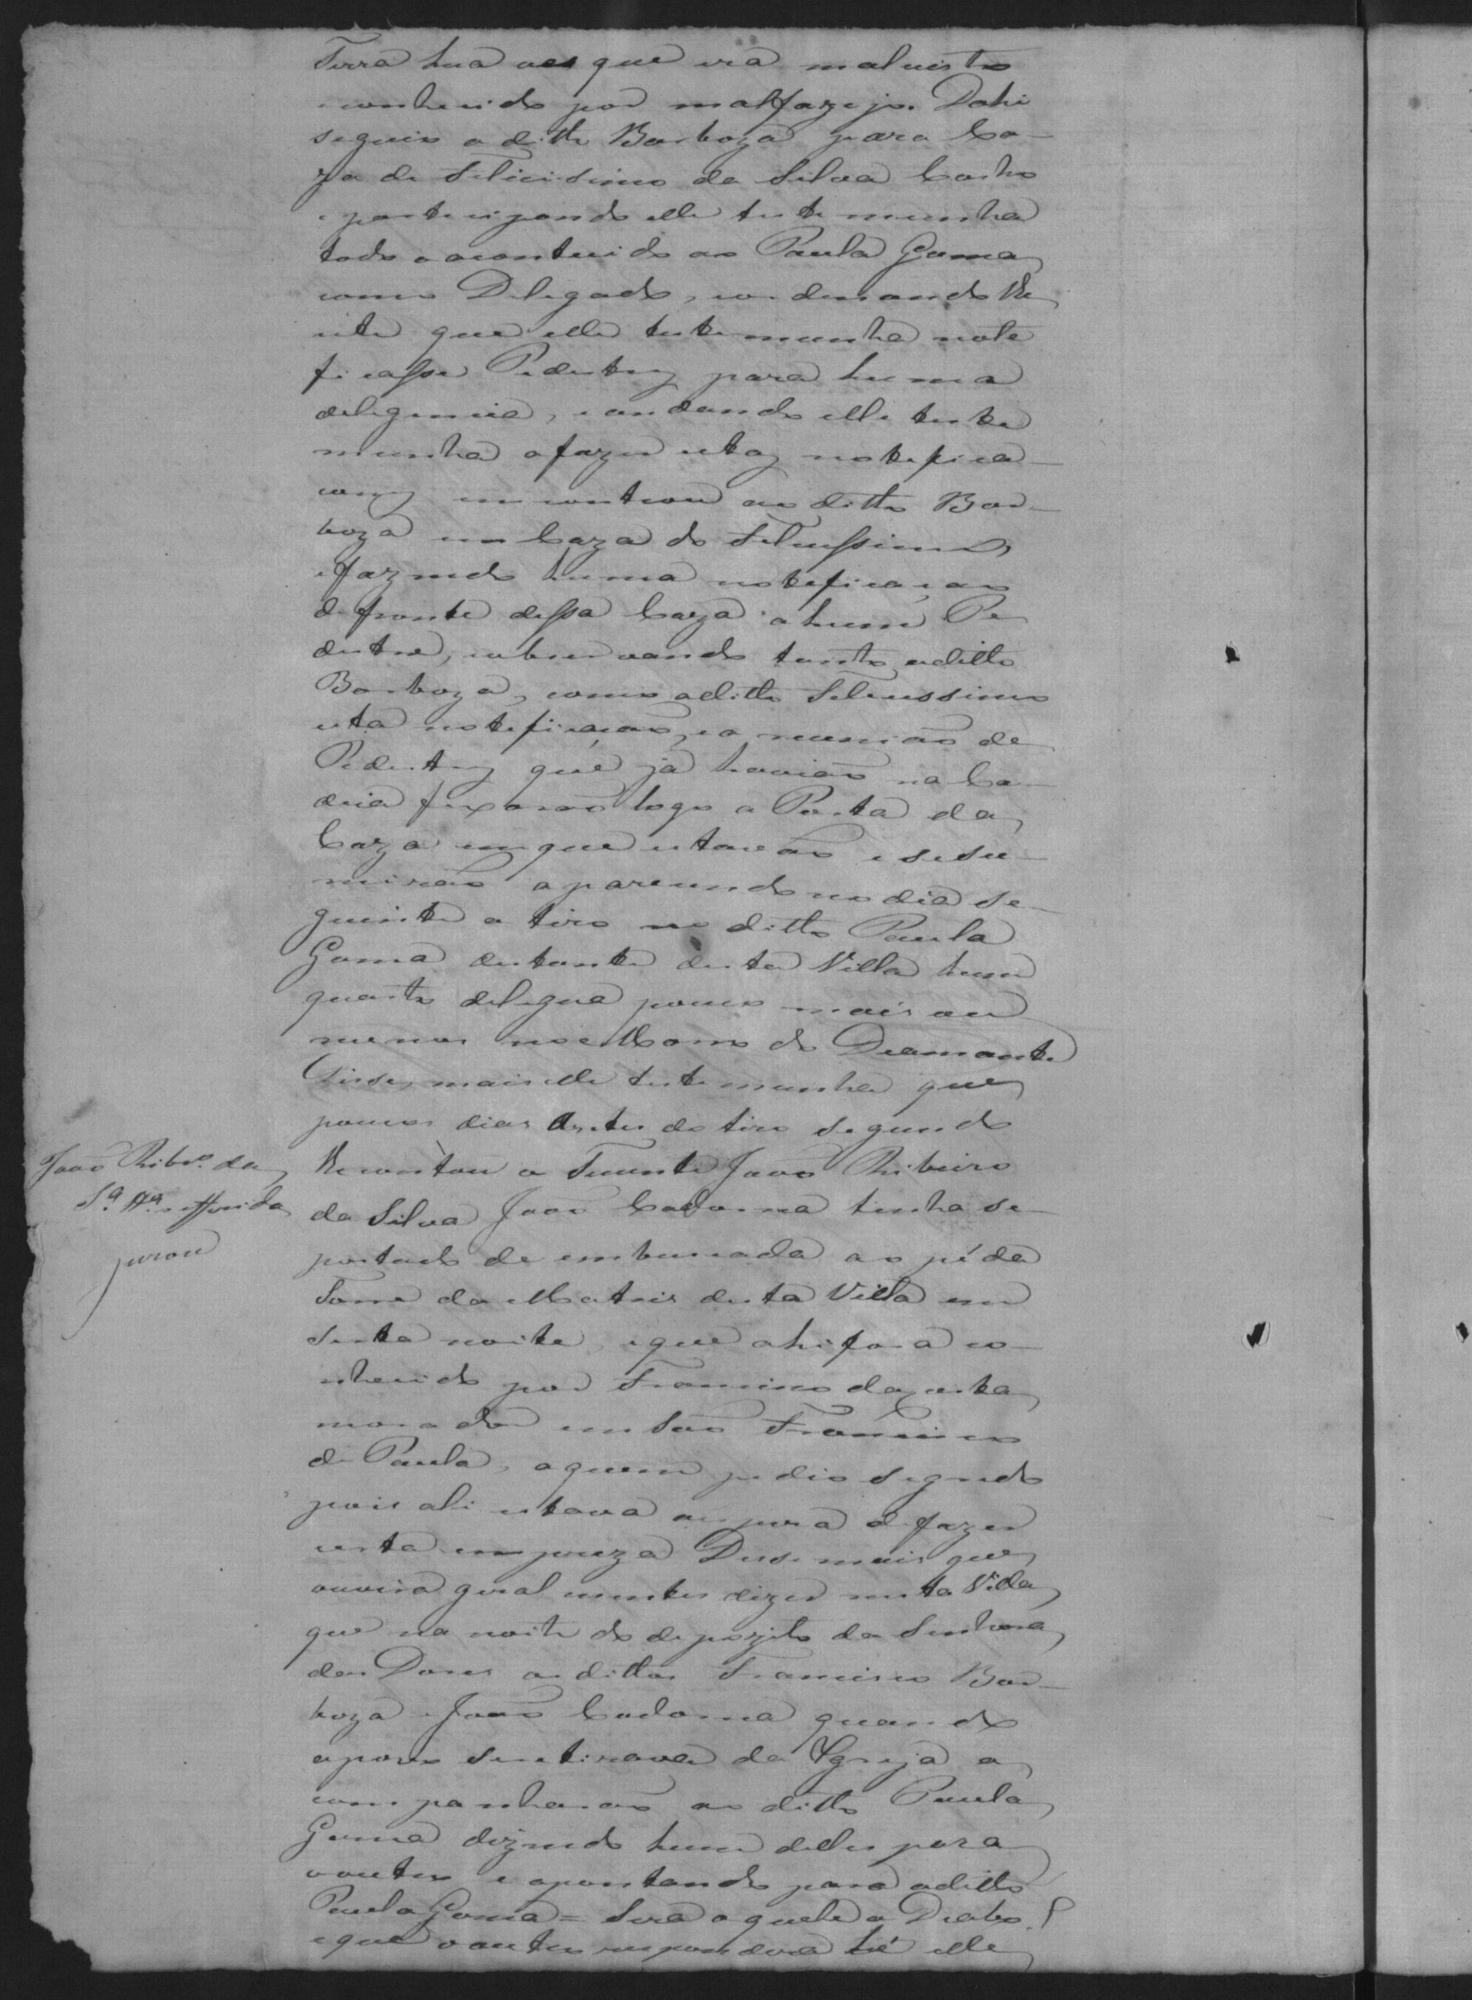 Terra hua ves que era malvisto
econhecido por malfazejo. Dahi
seguio o ditto Barboza para Ca-
za de Felicissimo da Silva Castro
e participando elle testemunha
todo o acontecido ao Paula Gama
como Delegado, ordenando lhe
este que elle testemunha note
ficasse Pedestres para huma
deligencia, e andando elle teste
munha afazer estas notefica-
coens encontrou ao ditto Bar-
boza em Caza do Felicissimo
efazendo huma noteficação
defronte dessa Caza ahum Pe
destre, eobservando tanto oditto
Barboza, como oditto Felicissimo
esta noteficação, ea reunião de
Pedestres que já havião na Ca-
deia fexarão logo a Porta da
Caza emque estavão e sesu-
mirão aparecendo no dia se-
guinte o tiro no ditto Paula
Gama distante desta Villa hum
quarto delegua pouco mais ou
menos no Morro do Deamante
Disse mais elle testemunha que
poucos dias Antes do tiro segundo
lhe contou o Tenente João Ribeiro
da Silva João Cadorna tinha se
postado de emboscada ao pé da
Torre da Matris desta Villa em
certa noite, eque ahi fora co-
nhecido por Francisco da Costa
morador em São Francisco
de Paula, aquem pedio segredo
pois ali estava aespera defazer
certa empreza Disse mais que
ouvira geral mentes dizer nesta Villa
que na noite do depozito da Senhora
das Dores os dittos Francisco Bar-
boza e João Cadorna quando
opovo seretirava da Igreja a
companharão ao ditto Paula
Gama dizendo hum delles para
ooutro e apontando para oditto
Paula Gama = Será aquele o Diabo?
eque ooutro respondera hé elle
João Ribrº. da
Sª. Ta. refferida
jurou